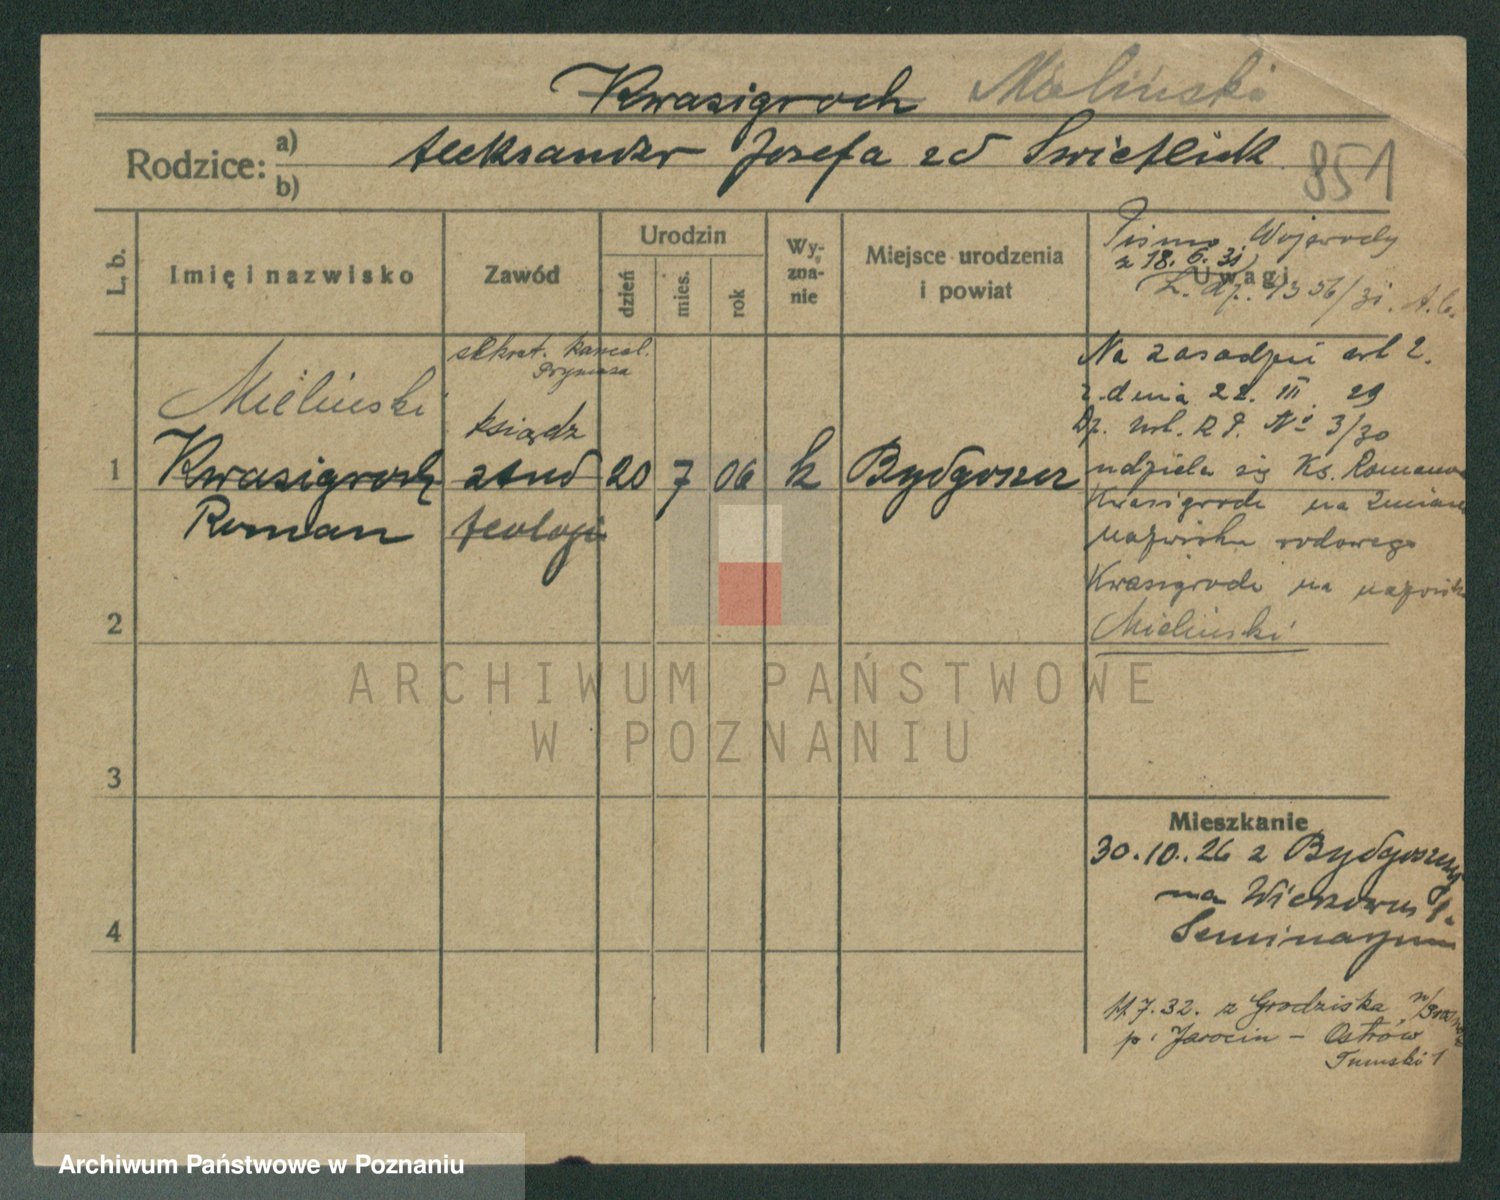 Kwasigroch Mieliński
Rodzice: a)
b)
Aleksander Józefa zd Swietlick
851
L. b.
Imię i nazwisko
Zawód
Urodzin
dzień
mies.
rok
Wy-
zna-
nie
Miejsce urodzenia
i powiat
Uwagi
Pismo Wojewody
z 18. 6. 31
A. C.
1
Mieliński
Kwasigroch
Roman
sekret. kancel.
Prymasa
ksiądz
stud
teologji
20
7
06
k
Bydgoszcz
Na zasadzie art 2.
z dnia 22. III 29
Dz. Nr 3/30
udziela się Ks. Romanow
Kwasigroch na zmianę
nazwiska rodowego
Kwasigroch na nazwisko
Mieliński
2
3
4
Mieszkanie
30.10.26 z Bydgoszczy
na
Seminaryum
11.7.32. z Grodziska
p. Jarocin - Ostrów
Tumski 1
ARCHIWUM PAŃSTWOWE
W POZNANIU
Archiwum Państwowe w Poznaniu